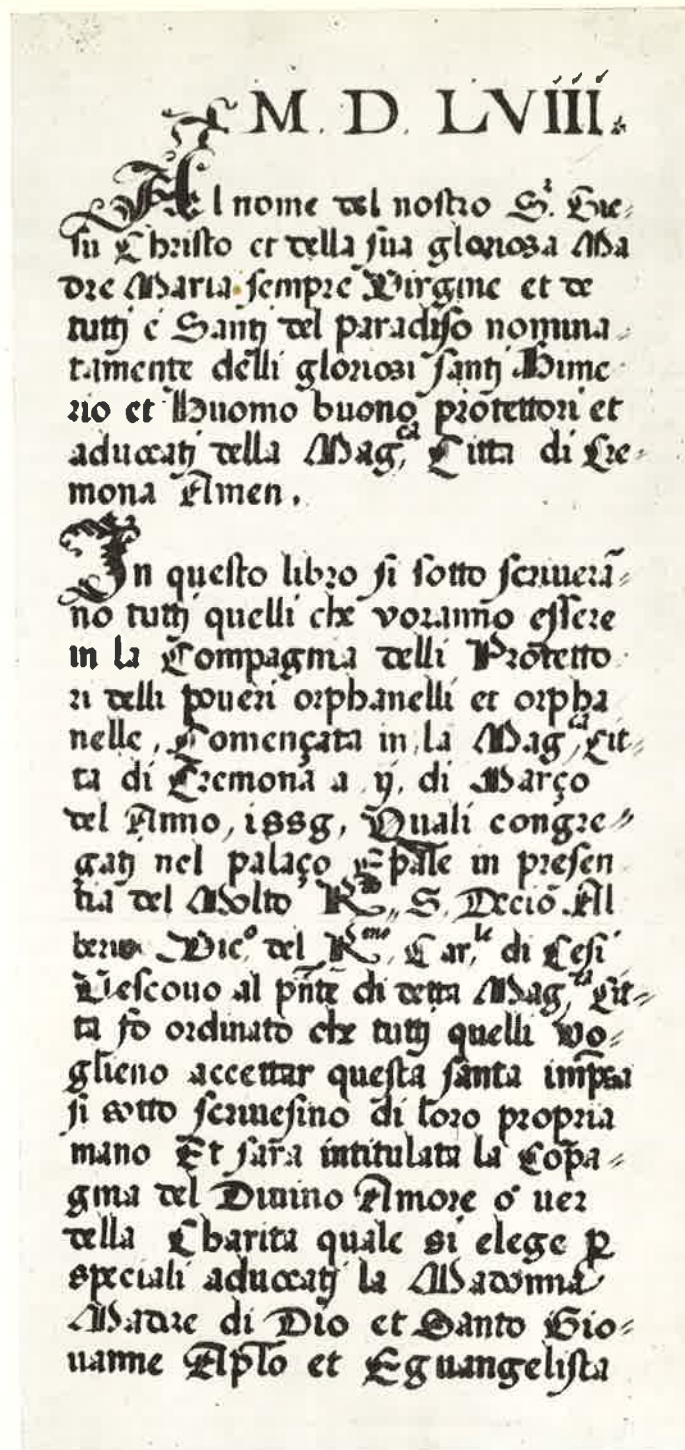 ✝ M. D. LVIII.
Al nome del nostro S.r Gie⸗
su Christo et della sua gloriosa Ma
dre Maria sempre Virgine et de
tutti e Santi del paradiso nomina⸗
tamente delli gloriosi santi Hime
rio et Huomo buono protettori et
aduocati della Mag.ca Citta di Cre⸗
mona Amen.
In questo libro si sotto scriuerā⸗
no tutti quelli che voranno essere
in la Compagnia delli Protetto
ri delli poueri orphanelli et orpha
nelle, Començata in la Mag.ca Cit⸗
ta di Cremona a .ij. di Março
del Anno, 1558, Quali congre⸗
gati nel palaço Ep̄ale in presen
tia del Molto R.do S. Decio Al
berio Vic.o del R.mo Car.le di Cesi
Vescouo al pn̄te di detta Mag.ca Cit⸗
ta fo ordinato che tutti quelli vo⸗
glieno accettar questa santa imp̄sa
si sotto scriuesino di loro propria
mano Et sarà intitulata la Cop̄a⸗
gnia del Diuino Amore o' uer
della Charita quale si elege ꝑ
speciali aduocati la Madonna
Madre di Dio et Santo Gio⸗
uanne Ap̄lo et Eguangelista